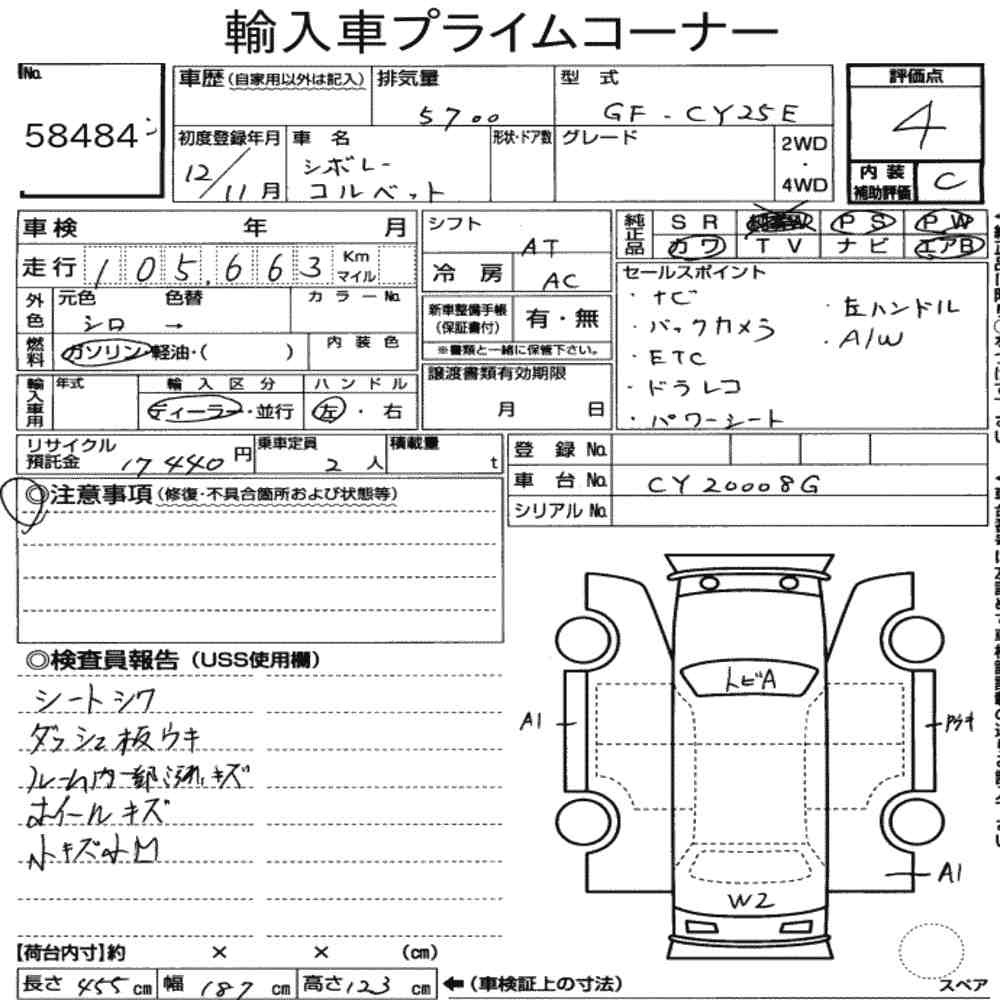 輸入車プライムコーナー
No.
58484
車歴(自家用以外は記入)
排気量
5700
型 式
GF-CY25E
評価点
4
初度登録年月
12/11月
車 名
シボレー
コルベット
形状・ドア数
グレード
2WD
・
4WD
内装
補助評価
C
車検 年 月
走行 105,663 Km
マイル
シフト
AT
冷 房
AC
純正品
SR PS PW
カワ TV ナビ エアB
外色
元色 色替
シロ →
カラーNo.
燃料
ガソリン・軽油・( )
内装色
新車整備手帳
(保証書付)
有・無
※書類と一緒に保管下さい。
セールスポイント
・ナビ
・バックカメラ
・ETC
・ドラレコ
・パワーシート
・左ハンドル
・A/W
輸入車用
年式
輸入区分
ディーラー・並行
ハンドル
左・右
譲渡書類有効期限
月 日
リサイクル
預託金 17440円
乗車定員
2人
積載量
t
登 録 No.
車 台 No. CY20008G
シリアル No.
◎注意事項(修復・不具合箇所および状態等)
◎検査員報告(USS使用欄)
シートシワ
ダッシュ板ウキ
ルーム内一部汚れ、キズ
ホイールキズ
小キズ小凹
トビA
A1
A1
W2
【荷台内寸】約 × × (cm)
長さ 455 cm 幅 187 cm 高さ 123 cm ←(車検証上の寸法)
スペア